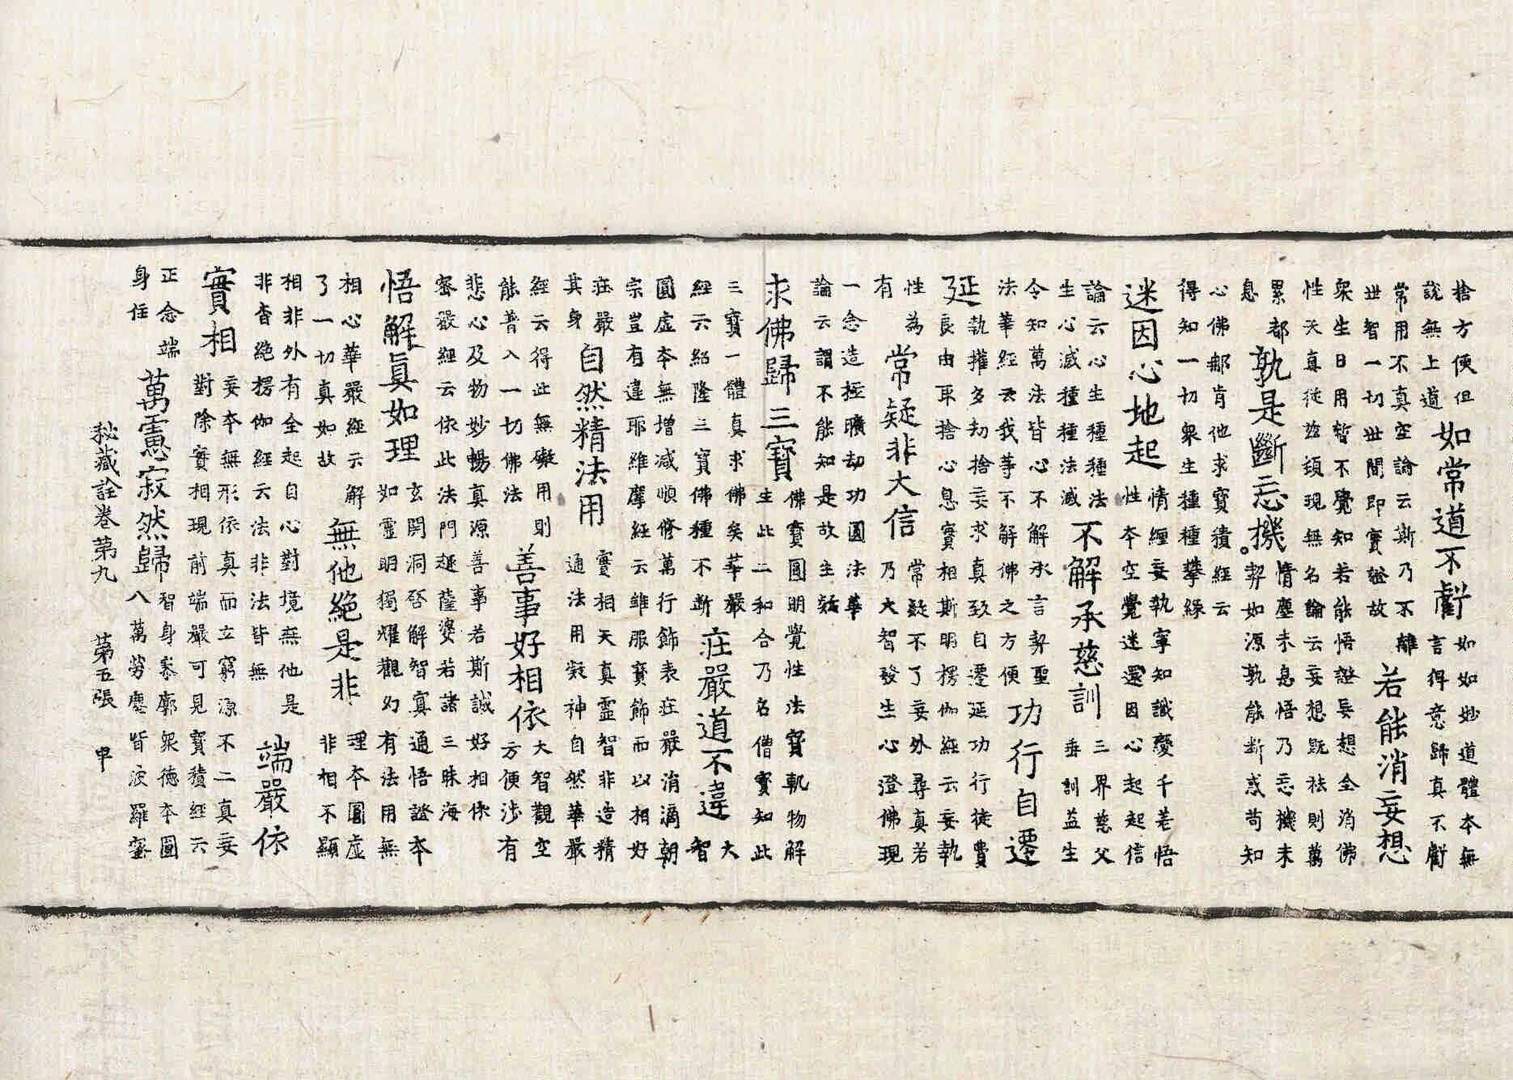 捨方便但
說無上道
如常道不虧
如如妙道體本無
言得意歸真不虧
常用不真空論云斯乃不離
世智一切世間即實諡故
若能消妄想
衆生日用暫不覺知若能悟證妄想全消佛
性天真從茲頓現無名論云妄想既祛則萬
累都
息
孰是斷忘機
情塵未息悟乃忘機未
契如源孰能斷惑苟知
心佛那肯他求寶積經云
得知一切衆生種種攀緣
迷因心地起
情纏妄執寧知識變千差悟
性本空覺迷還因心起起信
論云心生種種法
生心滅種種法滅
不解承慈訓
三界慈父
垂訓益生
令知萬法皆心不解承言契聖
法華經云我等不解佛之方便
功行自遷
延
執權多劫捨妄求真致自遷延功行徒費
良由取捨心息實相斯明楞伽經云妄執
性為
有
常疑非大信
常疑不了妄外尋真若
乃大智發生心澄佛現
一念造極曠劫功圓法華
論云謂不能知是故生疑
求佛歸三寶
佛寶圓明覺性法寶軌物解
生此二和合乃名僧寶知此
三寶一體真求佛矣華嚴
經云紹隆三寶佛種不斷
莊嚴道不違
大
智
圓虛本無增減順修萬行飾表莊嚴消滴朝
宗豈有違耶維摩經云雖服寶飾而以相好
莊嚴
其身
自然精法用
實相天真靈智非造精
通法用凝神自然華嚴
經云得此無礙用則
能普入一切佛法
善事好相依
大智觀空
方便涉有
悲心及物妙暢真源善事若斯誠好相依
密嚴經云依此法門趣薩婆若諸三昧海
悟解眞如理
玄開洞啓解智冥通悟證本
如靈明獨耀觀幻有法用無
相心華嚴經云解
了一切真如故
無他絕是非
理本圓虛
非相不顯
相非外有全起自心對境無他是
非杳絕楞伽經云法非法皆無
端嚴依
實相
妄本無形依真而立窮源不二真妄
對除實相現前端嚴可見寶積經云
正念端
身住
萬慮寂然歸
智身寥廓衆德本圓
八萬勞塵皆波羅蜜
秘藏詮卷第九 第五張 申